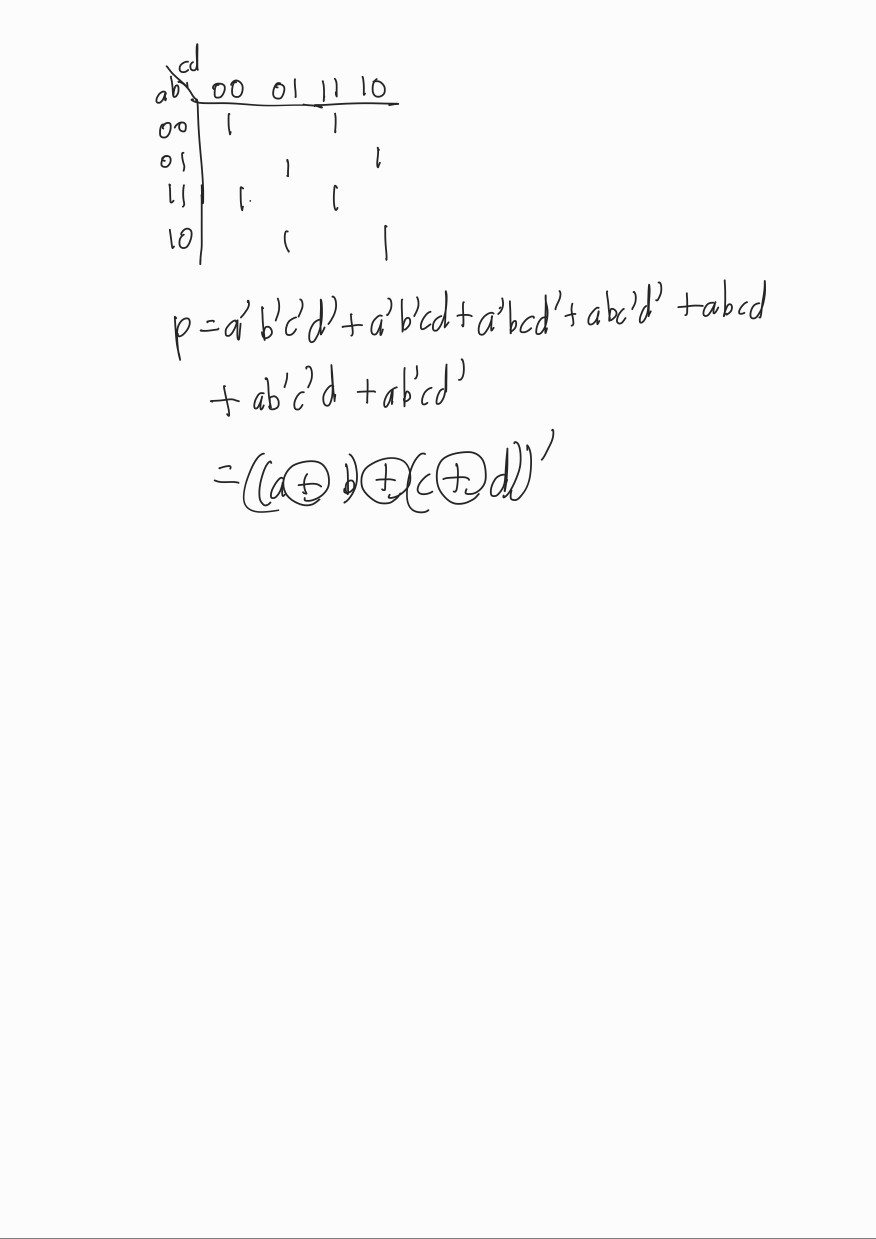 cd
ab 00 01 11 10
00 1 1
01 1 1
11 1 1
10 1 1
p = a'b'c'd' + a'b'cd + a'bcd' + abc'd' + abcd
+ ab'c'd + ab'cd'
= ((a ⊕ b) ⊕ (c ⊕ d))'